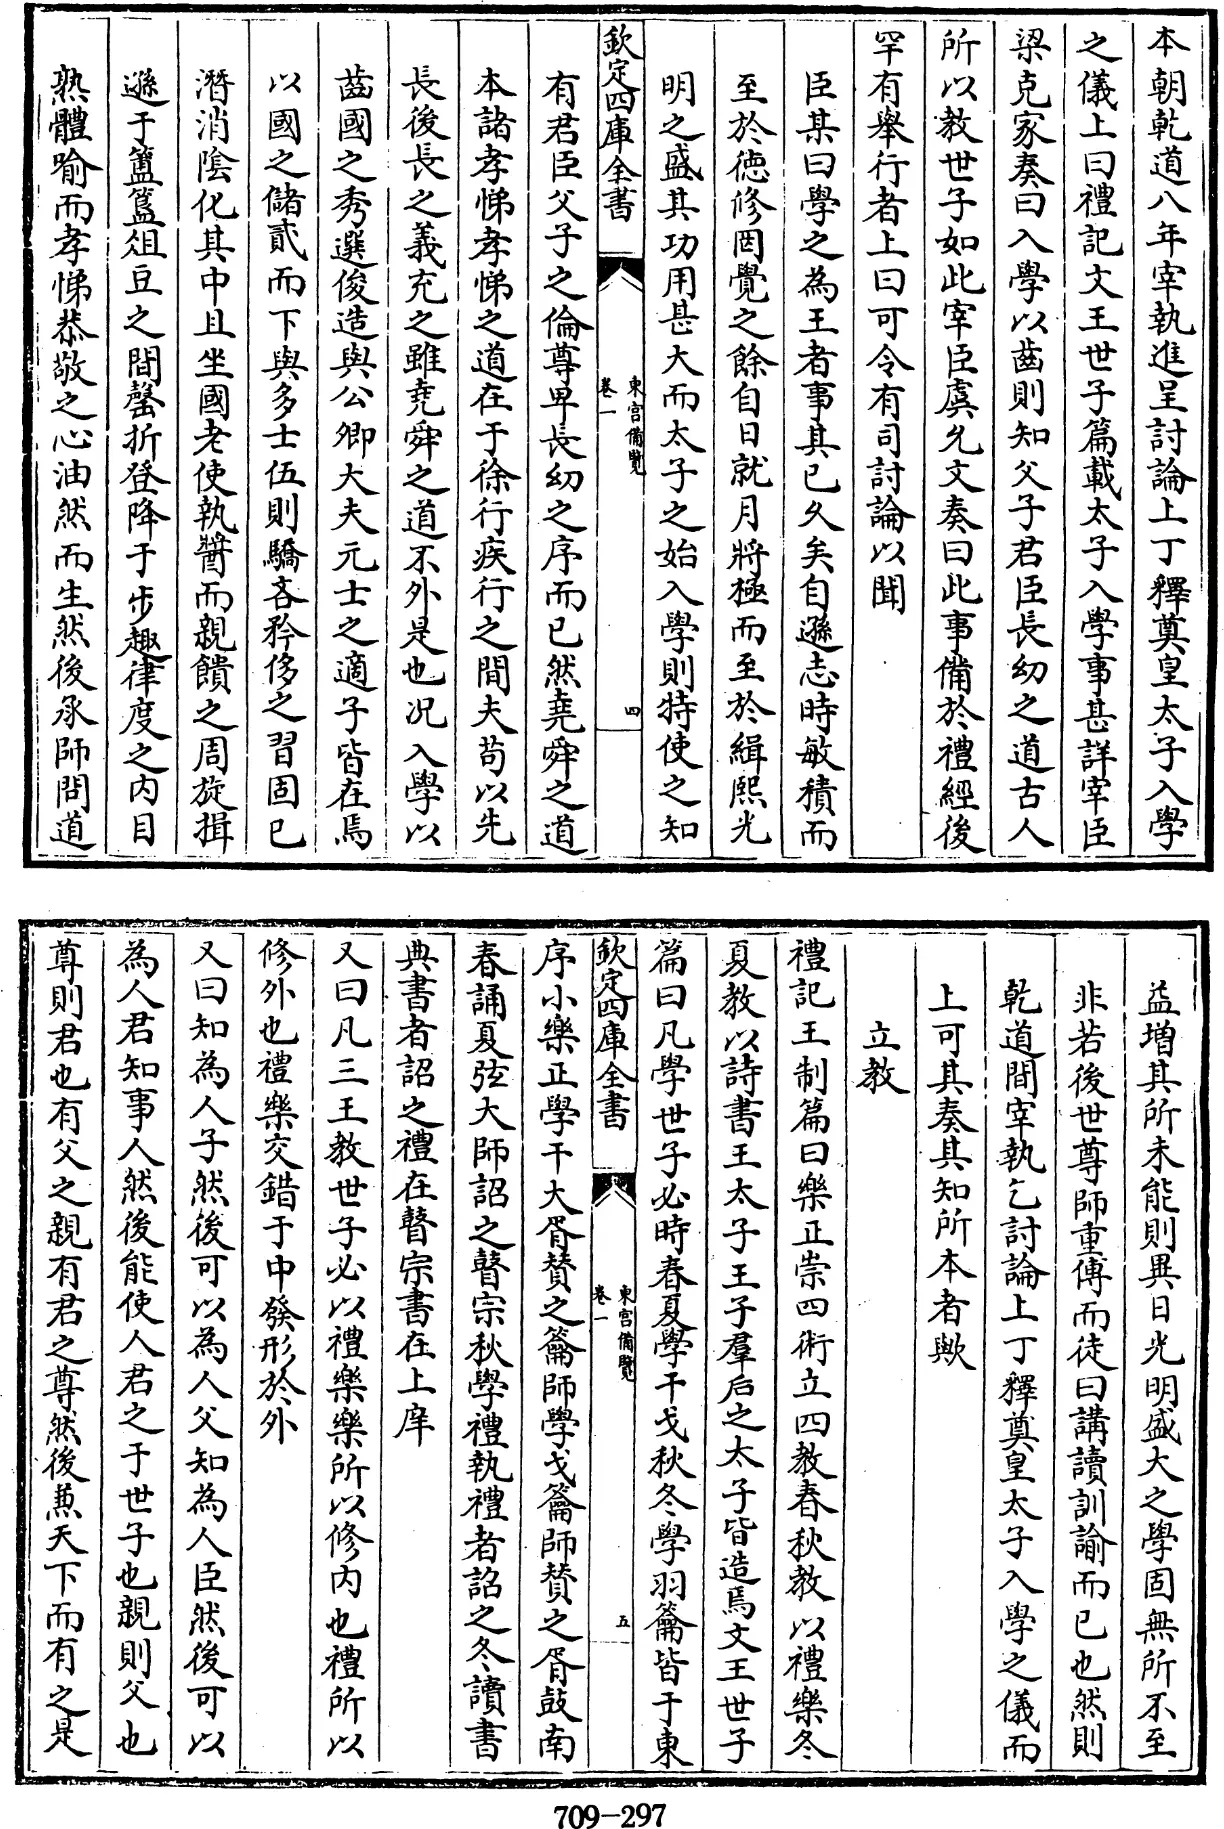 本朝乾道八年宰執進呈討論上丁釋奠皇太子入學
之儀上曰禮記文王世子篇載太子入學事甚詳宰臣
梁克家奏曰入學以齒則知父子君臣長幼之道古人
所以教世子如此宰臣虞允文奏曰此事備於禮經後
罕有舉行者上曰可令有司討論以聞
臣某曰學之為王者事其已久矣自遜志時敏積而
至於徳修罔覺之餘自日就月將極而至於緝熙光
明之盛其功用甚大而太子之始入學則特使之知
欽定四庫全書
東宮備覽
卷一
四
有君臣父子之倫尊卑長幼之序而已然堯舜之道
本諸孝悌孝悌之道在于徐行疾行之間夫苟以先
長後長之義充之雖堯舜之道不外是也況入學以
齒國之秀選俊造與公卿大夫元士之適子皆在焉
以國之儲貳而下與多士伍則驕吝矜侈之習固已
潛消隂化其中且坐國老使執醬而親饋之周旋揖
遜于簠簋俎豆之間罄折登降于步趣律度之内目
熟體喻而孝悌恭敬之心油然而生然後承師問道
益增其所未能則異日光明盛大之學固無所不至
非若後世尊師重傅而徒曰講讀訓諭而已也然則
乾道間宰執乞討論上丁釋奠皇太子入學之儀而
上可其奏其知所本者歟
立教
禮記王制篇曰樂正崇四術立四教春秋教以禮樂冬
夏教以詩書王太子王子羣后之太子皆造焉文王世子
篇曰凡學世子必時春夏學干戈秋冬學羽籥皆于東
欽定四庫全書
東宮備覽
卷一
五
序小樂正學干大胥贊之籥師學戈籥師贊之胥鼓南
春誦夏弦大師詔之瞽宗秋學禮執禮者詔之冬讀書
典書者詔之禮在瞽宗書在上庠
又曰凡三王教世子必以禮樂樂所以修内也禮所以
修外也禮樂交錯于中發形於外
又曰知為人子然後可以為人父知為人臣然後可以
為人君知事人然後能使人君之于世子也親則父也
尊則君也有父之親有君之尊然後蕪天下而有之是
709-297